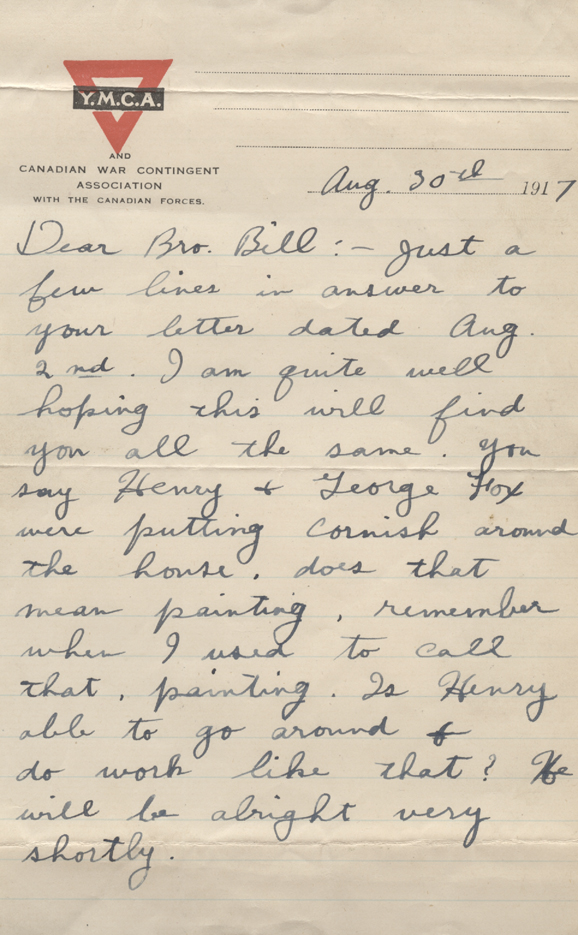 Y.M.C.A.
AND
CANADIAN WAR CONTINGENT
ASSOCIATION
WITH THE CANADIAN FORCES.
Aug. 30th 1917
Dear Bro. Bill :- Just a
few lines in answer to
your letter dated Aug.
2nd. I am quite well
hoping this will find
you all the same. You
say Henry + George Fox
were putting cornish around
the house, does that
mean painting, remember
when I used to call
that, painting. Is Henry
able to go around +
do work like that? He
will be alright very
shortly.